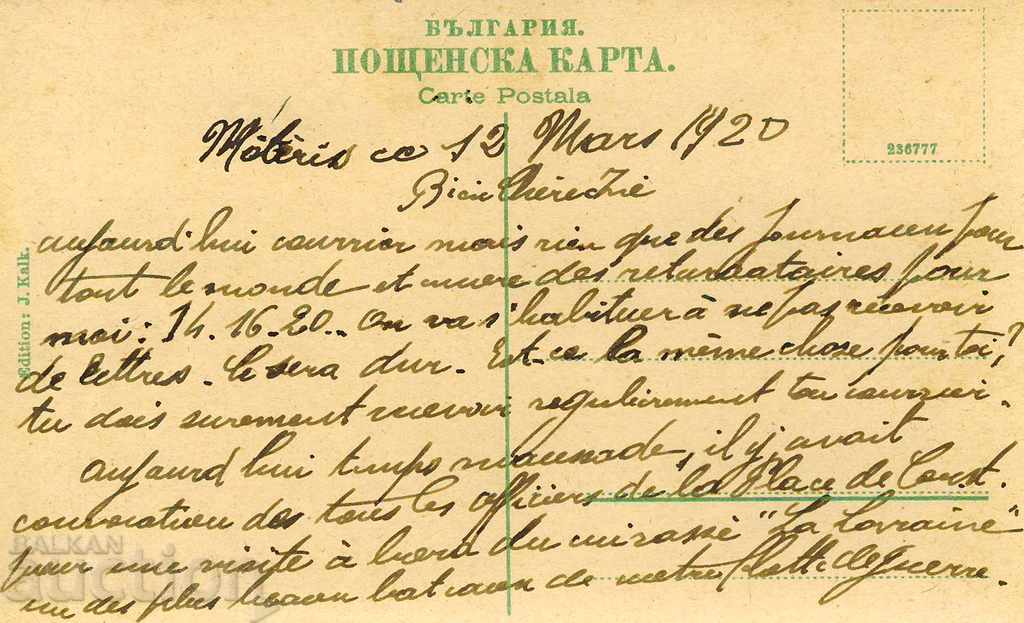 БЪЛГАРИЯ.
ПОЩЕНСКА КАРТА.
Carte Postala
236777
Edition: J. Kalk.
ce 12 Mars 1920
Bien Chère
aujourd'hui courrier mais rien que des journaux pour
tout le monde et encore des retardataires pour
moi: 14. 16. 20.. On va s'habituer à ne pas recevoir
de lettres. Ce sera dur. Est-ce la même chose pour toi?
tu dois surement recevoir regulierement ton courrier.
aujourd'hui temps maussade, il y avait
convocation des tous les officiers de la Place de Const.
pour une visite à bord du cuirassé "La Lorraine"
un des plus beaux bateaux de notre flotte de guerre.
BALKAN
auction